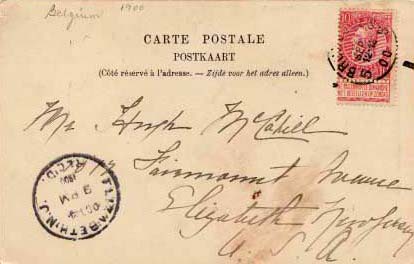 Belgium 1900
CARTE POSTALE
POSTKAART
(Côté réservé à l'adresse. — Zijde voor het adres alleen.)
10
Mr Hugh McCahill
Fairmount Avenue
Elizabeth New Jersey
U. S. A.
ELIZABETH, N.J.
REC'D.
9 PM